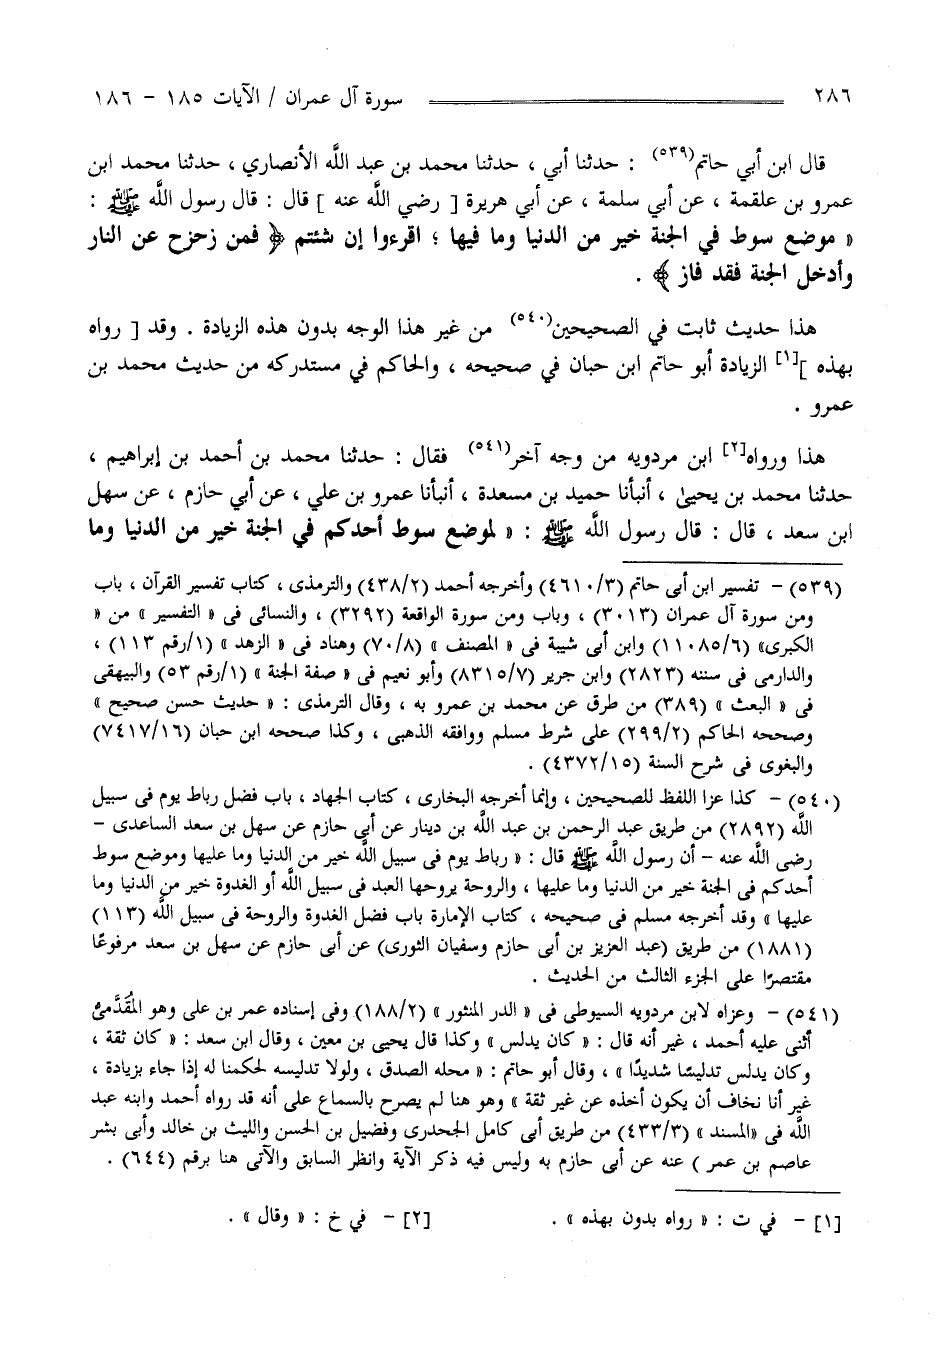 ٢٨٦ سورة آل عمران / الآيات ١٨٥ - ١٨٦
قال ابن أبي حاتم(٥٣٩) : حدثنا أبي ، حدثنا محمد بن عبد اللَّه الأنصاري ، حدثنا محمد ابن
عمرو بن علقمة ، عن أبي سلمة ، عن أبي هريرة [ رضي اللَّه عنه ] قال : قال رسول اللَّه ﷺ :
« موضع سوط في الجنة خير من الدنيا وما فيها ؛ اقرءوا إن شئتم ﴿ فمن زحزح عن النار
وأدخل الجنة فقد فاز ﴾ .
هذا حديث ثابت في الصحيحين(٥٤٠) من غير هذا الوجه بدون هذه الزيادة . وقد [ رواه
بهذه ][١] الزيادة أبو حاتم ابن حبان في صحيحه ، والحاكم في مستدركه من حديث محمد بن
عمرو .
هذا ورواه[٢] ابن مردويه من وجه آخر(٥٤١) فقال : حدثنا محمد بن أحمد بن إبراهيم ،
حدثنا محمد بن يحيىٰ ، أنبأنا حميد بن مسعدة ، أنبأنا عمرو بن علي ، عن أبي حازم ، عن سهل
ابن سعد ، قال : قال رسول اللَّه ﷺ : « لموضع سوط أحدكم في الجنة خير من الدنيا وما
(٥٣٩) - تفسير ابن أبى حاتم (٤٦١٠/٣) وأخرجه أحمد (٤٣٨/٢) والترمذى ، كتاب تفسير القرآن ، باب
ومن سورة آل عمران (٣٠١٣) ، وباب ومن سورة الواقعة (٣٢٩٢) ، والنسائى فى « التفسير » من «
الكبرى» (١١٠٨٥/٦) وابن أبى شيبة فى « المصنف » (٧٠/٨) وهناد فى « الزهد » (١/رقم ١١٣) ،
والدارمى فى سننه (٢٨٢٣) وابن جرير (٨٣١٥/٧) وأبو نعيم فى « صفة الجنة » (١/رقم ٥٣) والبيهقى
فى « البعث » (٣٨٩) من طرق عن محمد بن عمرو به ، وقال الترمذى : « حديث حسن صحيح »
وصححه الحاكم (٢٩٩/٢) على شرط مسلم ووافقه الذهبى ، وكذا صححه ابن حبان (٧٤١٧/١٦)
والبغوى فى شرح السنة (٤٣٧٢/١٥) .
(٥٤٠) - كذا عزا اللفظ للصحيحين ، وإنما أخرجه البخارى ، كتاب الجهاد ، باب فضل رباط يوم فى سبيل
اللَّه (٢٨٩٢) من طريق عبد الرحمن بن عبد اللَّه بن دينار عن أبي حازم عن سهل بن سعد الساعدى -
رضى اللَّه عنه - أن رسول اللَّه ﷺ قال : « رباط يوم فى سبيل اللَّه خير من الدنيا وما عليها وموضع سوط
أحدكم فى الجنة خير من الدنيا وما عليها ، والروحة يروحها العبد فى سبيل اللَّه أو الغدوة خير من الدنيا وما
عليها » وقد أخرجه مسلم فى صحيحه ، كتاب الإمارة باب فضل الغدوة والروحة فى سبيل اللَّه (١١٣)
(١٨٨١) من طريق (عبد العزيز بن أبى حازم وسفيان الثورى) عن أبى حازم عن سهل بن سعد مرفوعًا
مقتصرًا على الجزء الثالث من الحديث .
(٥٤١) - وعزاه لابن مردويه السيوطى فى « الدر المنثور » (١٨٨/٢) وفى إسناده عمر بن على وهو المُقَدَّمىُّ
أثنى عليه أحمد ، غير أنه قال : « كان يدلس » وكذا قال يحيى بن معين ، وقال ابن سعد : « كان ثقة ،
وكان يدلس تدليسًا شديدًا » ، وقال أبو حاتم : « محله الصدق ، ولولا تدليسه لحكمنا له إذا جاء بزيادة ،
غير أنا نخاف أن يكون أخذه عن غير ثقة » وهو هنا لم يصرح بالسماع على أنه قد رواه أحمد وابنه عبد
اللَّه فى «المسند » (٤٣٣/٣) من طريق أبى كامل الجحدرى وفضيل بن الحسن والليث بن خالد وأبى بشر
عاصم بن عمر ) عنه عن أبى حازم به وليس فيه ذكر الآية وانظر السابق والآتى هنا برقم (٦٤٤) .
[١] - في ت : « رواه بدون بهذه » . [٢] - في خ : « وقال » .